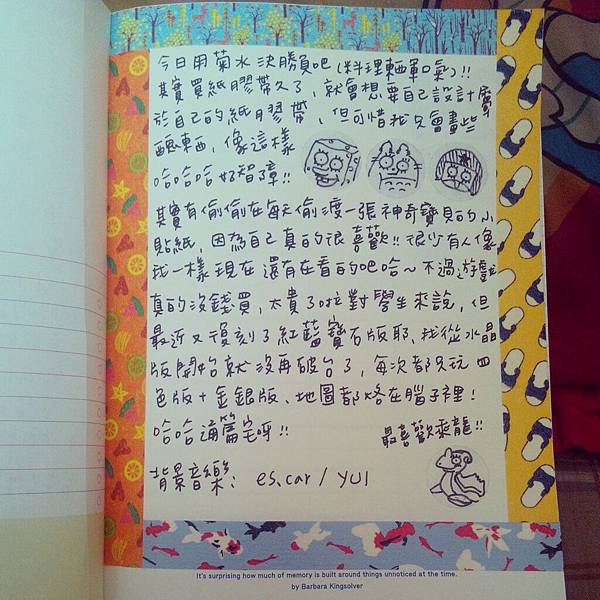 今日用菊水決勝負吧(料理東西軍口氣)!!
其實買紙膠帶久了,就會想要自己設計屬
於自己的紙膠帶,但可惜我只會畫些
醜東西,像這樣
哈哈哈好智障!!
其實有偷偷在每天偷渡一張神奇寶貝的小
貼紙,因為自己真的很喜歡!!很少有人像
我一樣現在還有在看的吧哈~不過遊戲
真的沒錢買,太貴了啦對學生來說,但
最近又復刻了紅藍寶石版耶,我從水晶
版開始就沒再破台了,每次都只玩四
色版+金銀版、地圖都烙在腦子裡!
哈哈滿篇宅呀!!
最喜歡乘龍!!
背景音樂: es.car / YUI
It's surprising how much of memory is built around things unnoticed at the time.
by Barbara Kingsolver